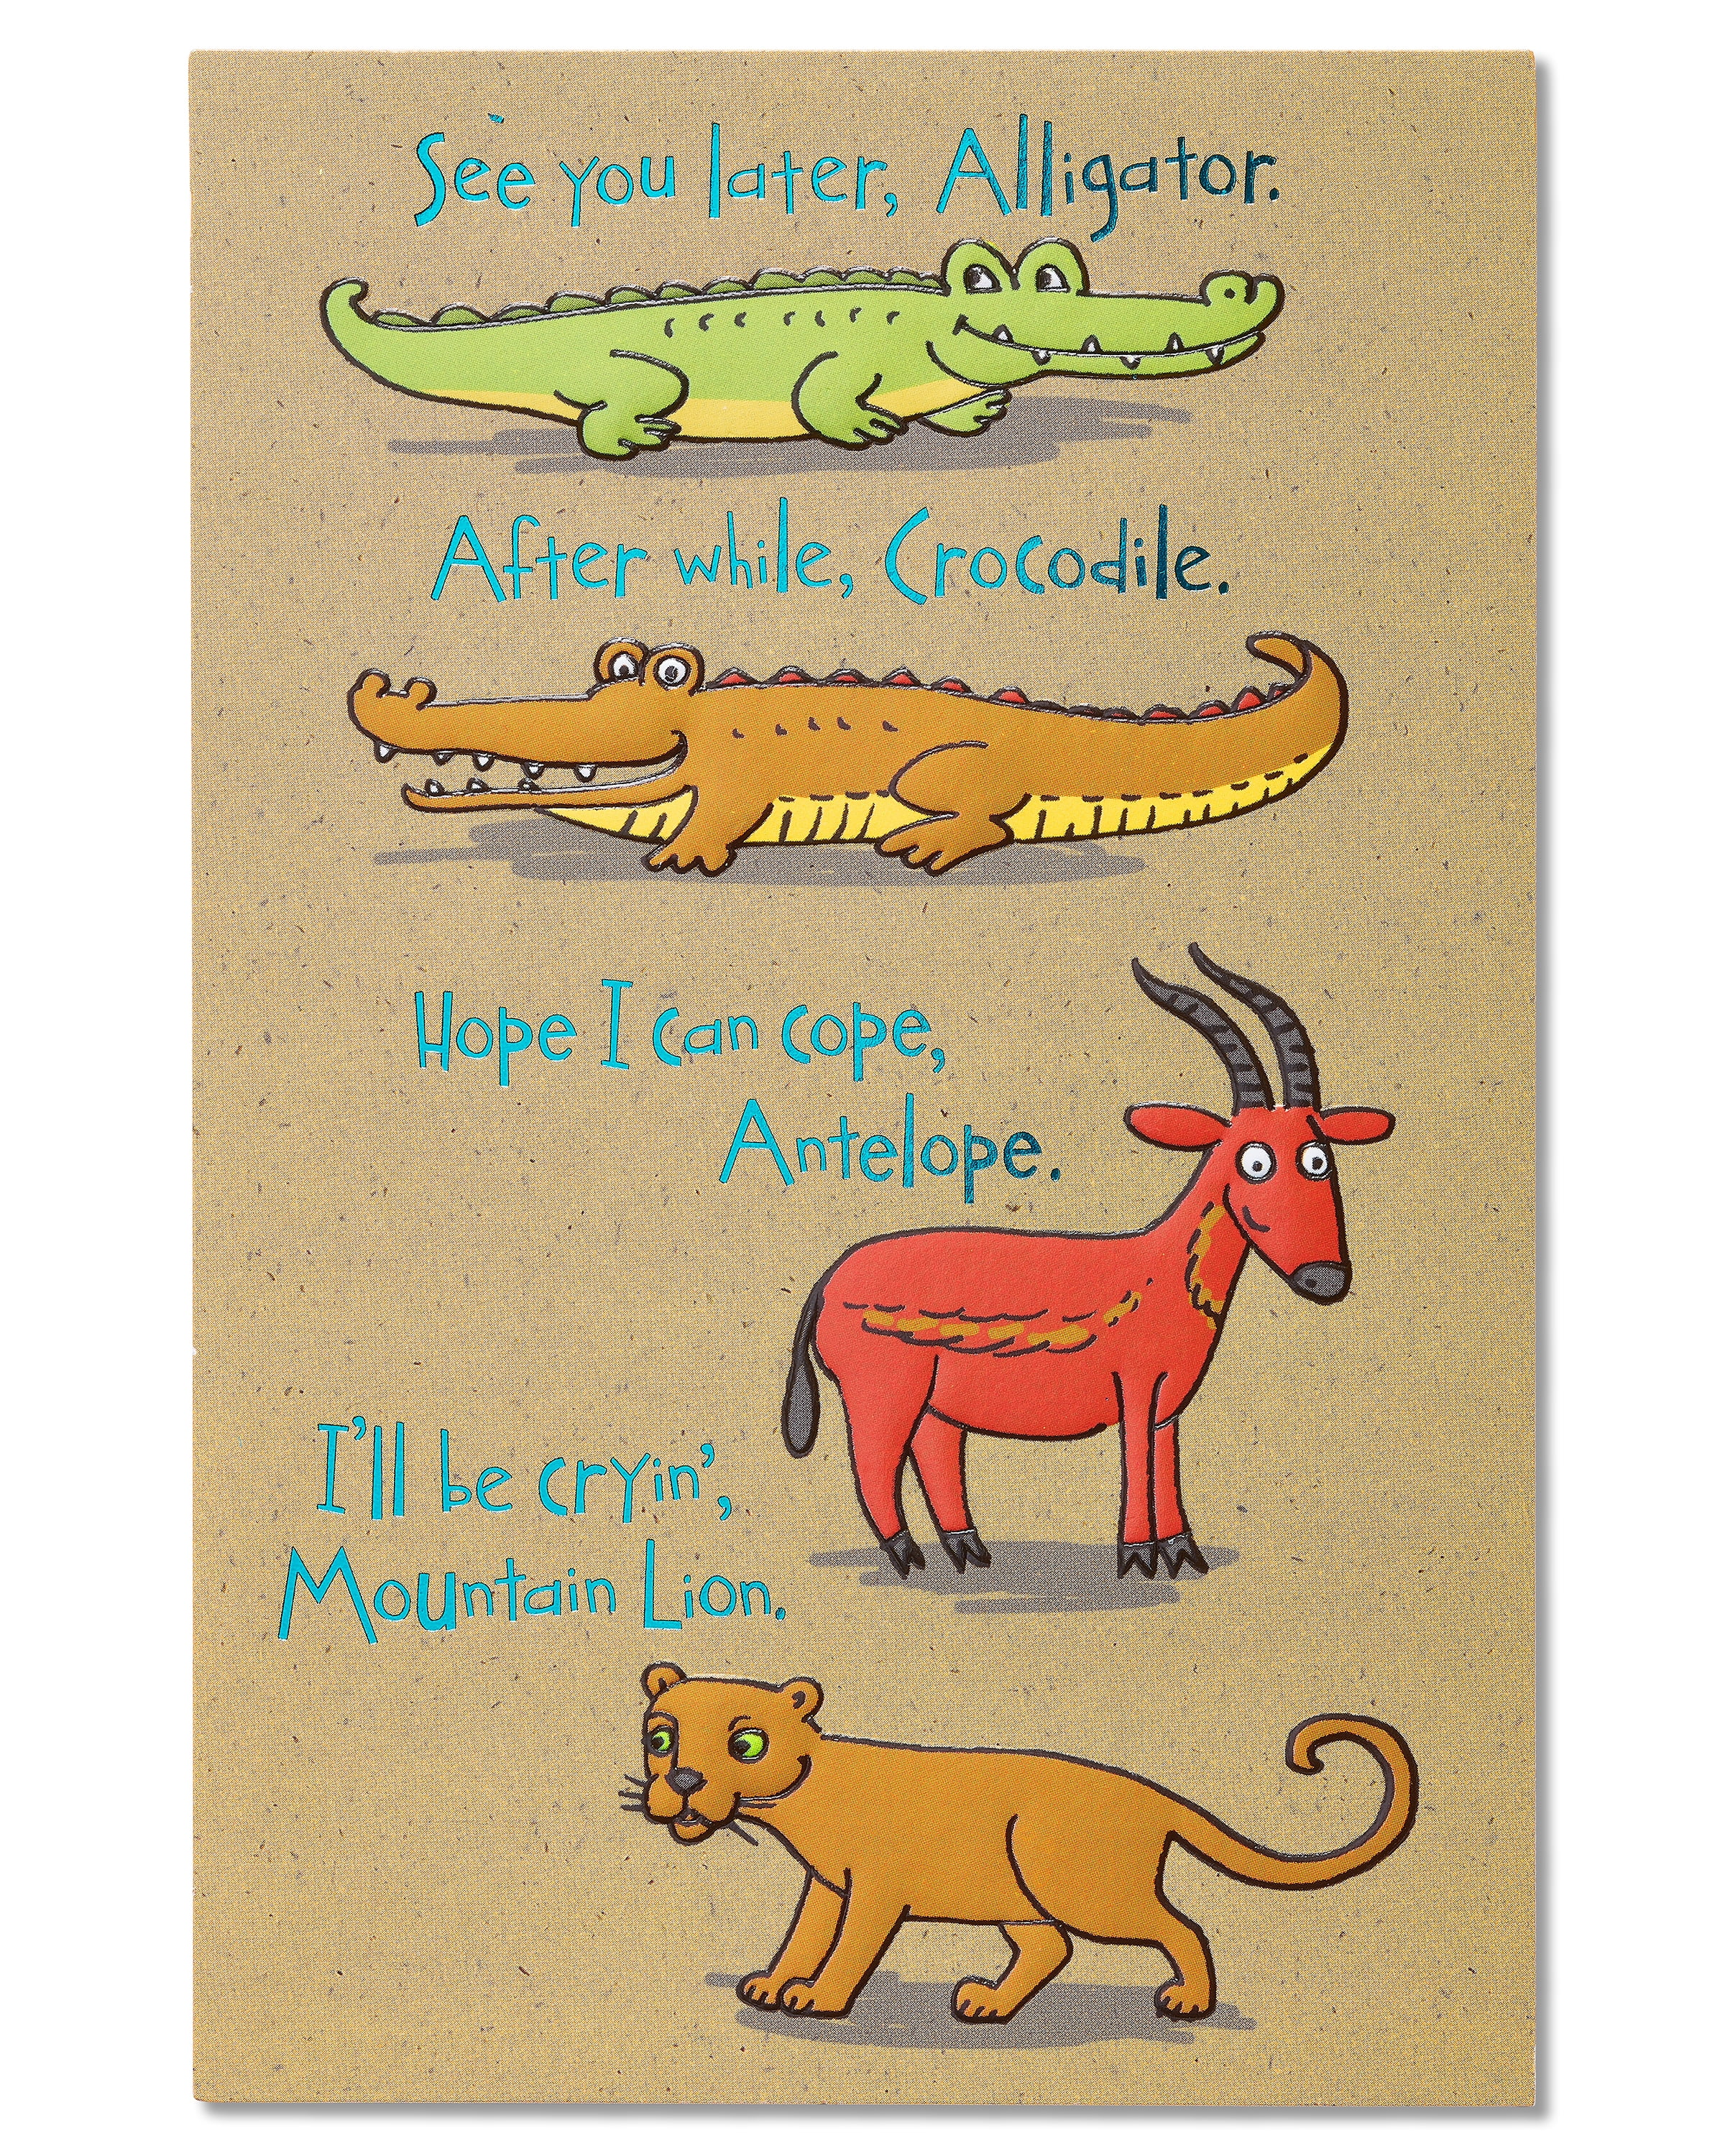 See you later, Alligator.
After while, Crocodile.
Hope I can cope,
Antelope.
I'll be cryin',
Mountain Lion.